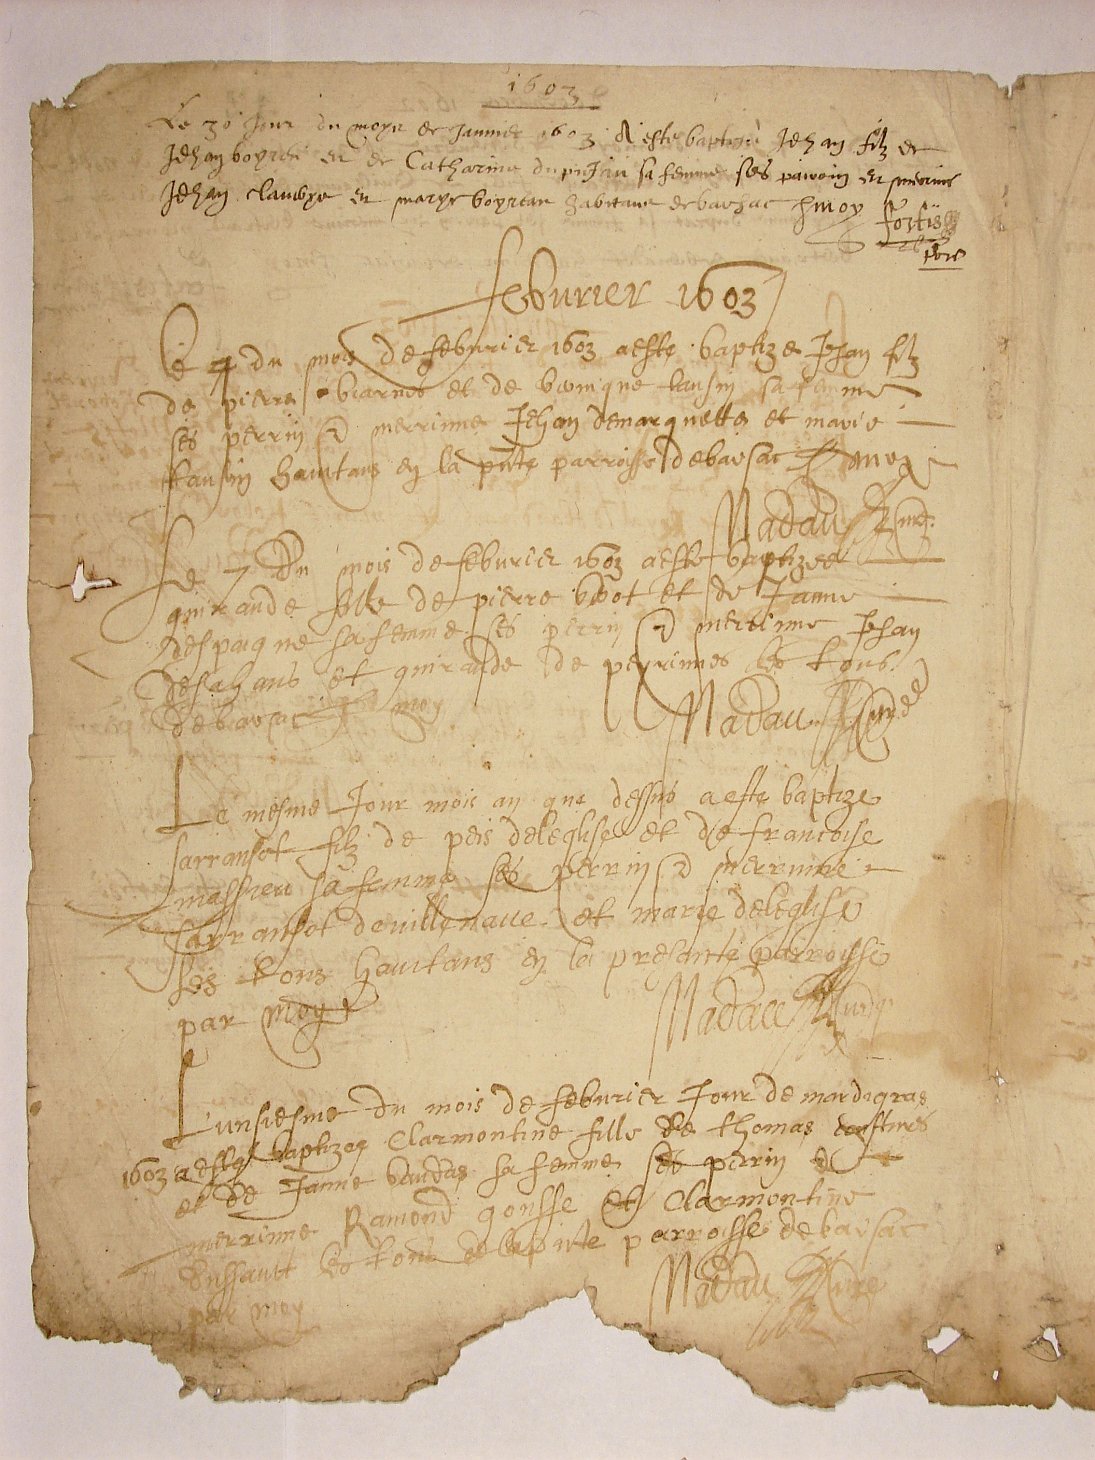 1603
Le 30 Jour du moys de Janvier 1603 A este baptisé Jehan filz de
Jehan boyreau et de Catharine sa femme ses parrin et merrine
Jehan Clauerye et marye boyreau habitans de barsac p moy fortis
pbre
feburier 1603
Le 4 du mois de feburier 1603 aeste baptize Jehan filz
de pierre biarnes et de tausin sa femme
ses perrin et merrinne Jehan demarquette et marie
tausin habitans en la pnte parroisse debarsac p moy
Madau Curé
Le 7 du mois de feburier 1603 aeste baptizee
quirande fille de pierre et de Janne
despaigne sa femme ses perrin et merrinne Jehan
et quirande de perrinnes les tous
debarsac p moy
Madau Curé
Le mesme Jour mois an que dessus aeste baptize
sarransot filz de peis deleglise et de francoise
massieu sa femme ses perrin et merrinne
sarransot de villenaue et marie deleglise
les tous habitans en la presante parroisse
par moy
Madau Curé
L'unsiesme du mois de feburier Jour de mardigras
1603 aeste baptizee Clarmontine fille de thomas
et de Janne sa femme ses perin et
merrinne Ramond gonsse et Clarmontine
dussault les tous de la pnte parroisse de barsac
par moy
Madau Curé